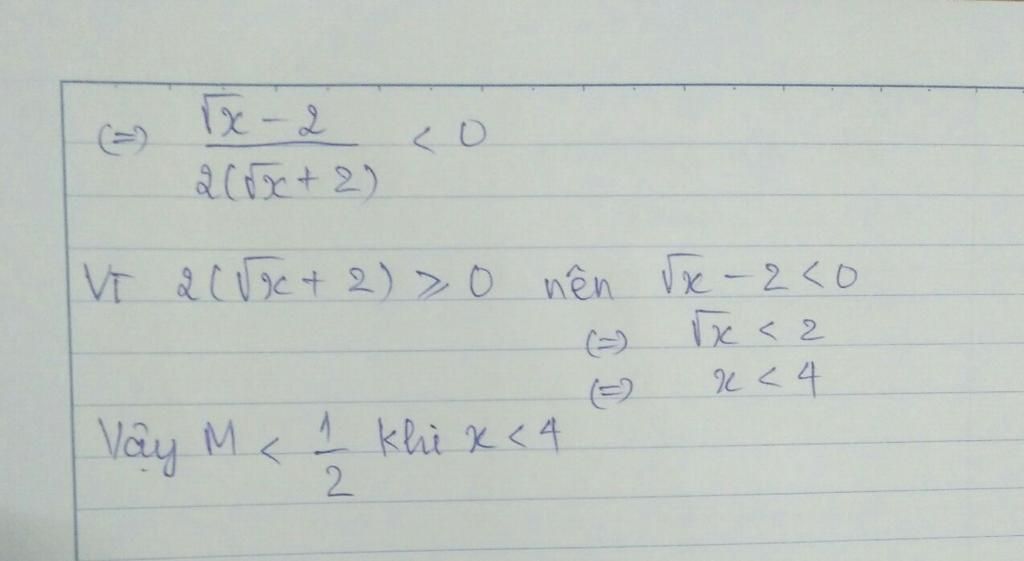 (=) √x - 2 / 2(√x + 2) < 0
Vì 2(√x + 2) ⩾ 0 nên √x - 2 < 0
(=) √x < 2
(=) x < 4
Vậy M < 1/2 khi x < 4